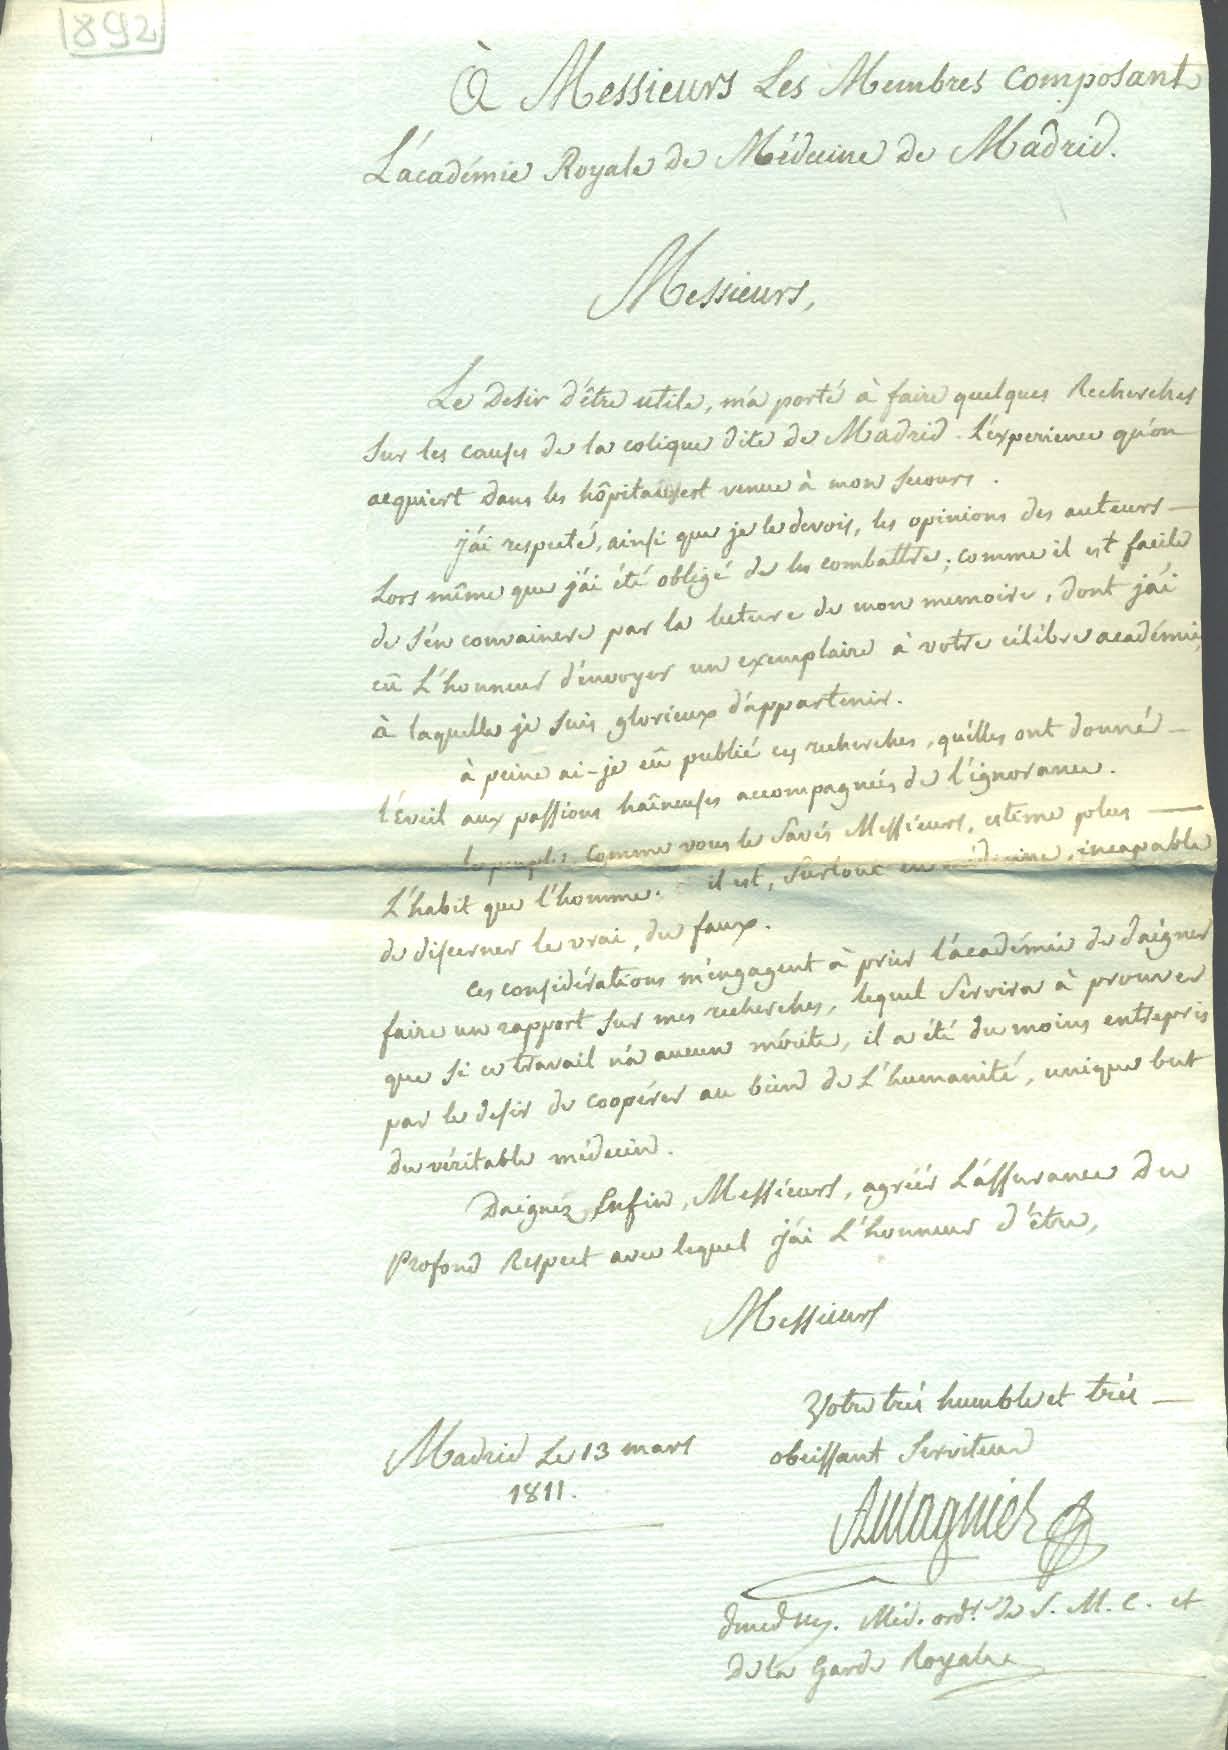 892
À Messieurs Les Membres composant
L'académie Royale de Médecine de Madrid.
Messieurs,
Le desir d'être utile, m'a porté à faire quelques Recherches
sur les causes de la colique dite de Madrid. L'éxperience qu'on
acquiert dans les hôpitaux est venue à mon secours.
j'ai respecté, ainsi que je le devois, les opinions des auteurs —
Lors même que j'ai été obligé de les combattre; comme il est facile
de s'en convaincre par la lecture de mon memoire, dont j'ai
eû L'honneur d'envoyer un exemplaire à votre célèbre académie,
à laquelle je suis glorieux d'appartenir.
à peine ai-je eû publié ces recherches, qu'elles ont donné —
l'Eveil aux passions haîneuses accompagnées de l'ignorance.
le peuple, comme vous le savés Messieurs, estime plus —
L'habit que l'homme. il est, surtout en médecine, incapable
de discerner le vrai, du faux.
Ces considérations m'engagent à prier l'académie de daigner
faire un rapport sur mes recherches, lequel servira à prouver
que si ce travail n'a aucun mérite, il a été du moins entrepris
par le desir de coopérer au bien de L'humanité, unique but
du véritable médecin.
Daignéz Enfin, Messieurs, agréér L'assurance du
Profond Respect avec lequel j'ai L'honneur d'être,
Messieurs
Votre très humble et très —
obeissant Serviteur
Madrid Le 13 mars
1811.
Aulagnier
Méd. ordre de S. M. C. et
de la Garde Royale